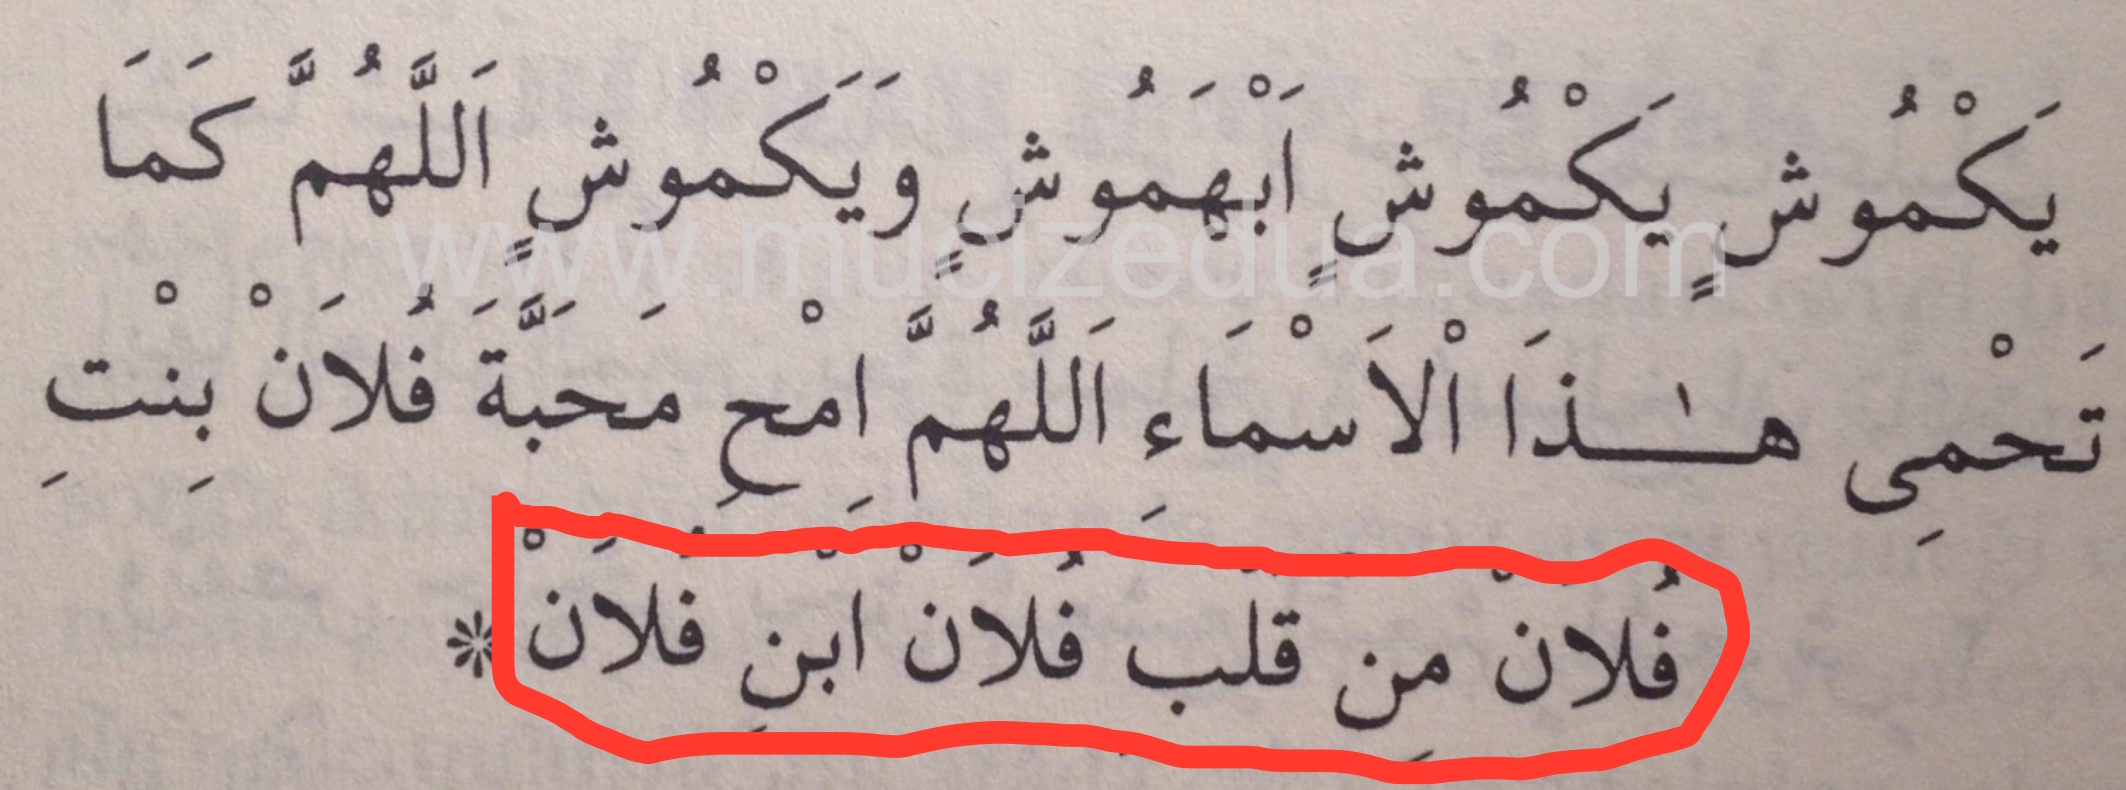 يَكْمُوشٍ يَكْمُوشٍ اَبْهَمُوشٍ وَيَكْمُوشٍ اَللَّهُمَّ كَمَا
تَحْمِى هٰذَا الْاَسْمَاءِ اَللَّهُمَّ امْحِ مَحَبَّةَ فُلَانْ بِنْتِ
فُلَانْ مِنْ قَلْبِ فُلَانْ ابْنِ فُلَانْ *
www.mucizedua.com